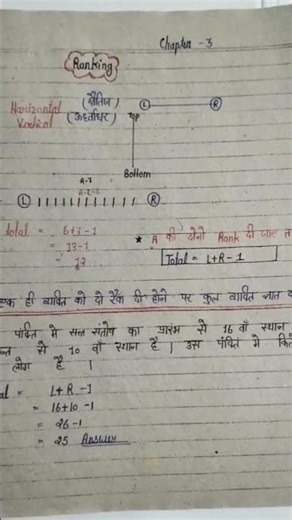 Chapter - 3
Ranking
Horizontal (क्षैतिज) L R
Vertical (उर्ध्वाधर) Top
Bottom
A-7
L R
Total = 6+7-1
= 13-1
= 12
★ A की दोनो Rank दी जाए
Total = L+R-1
ही व्यक्ति को दो रैंक दी होने पर कुल व्यक्ति ज्ञात
पंक्ति में सन्त संतोष का प्रारंभ से 16 वाँ स्थान
से 10 वाँ स्थान है | उस पंक्ति में
लोग है |
= L+R-1
= 16+10-1
= 26-1
= 25 Answer